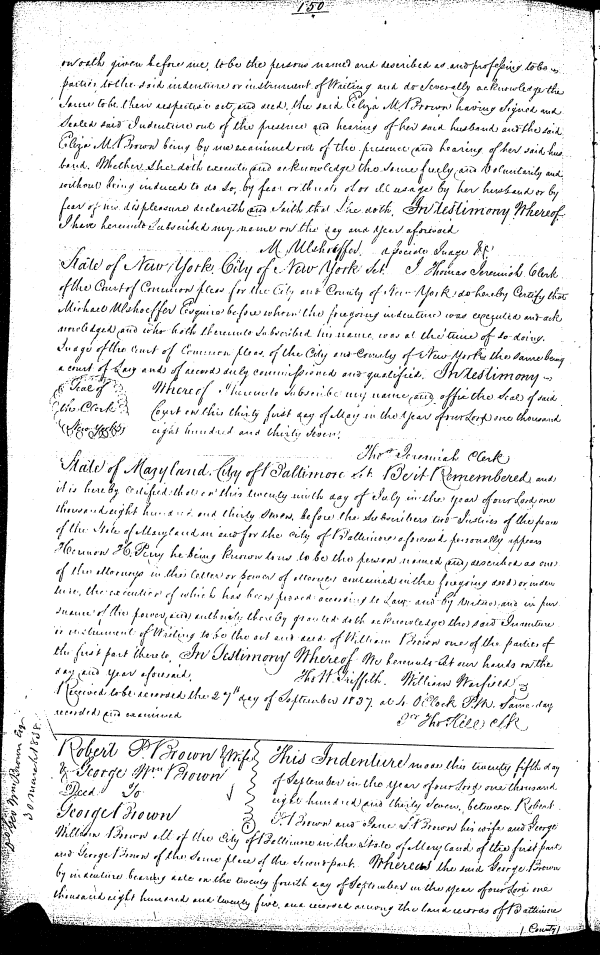 150
on oath given before me, to be the persons named and described as and professing to be
parties to the said indenture or instrument of Writing and do Severally acknowledge the
Same to be their respective act, and deed, the said Eliza M Brown having Signed and
Sealed said Indenture out of the presence and hearing of her said husband and the said
Eliza M Brown being by me examined out of the presence and hearing of her said hus
band. Whether She doth execute and acknowledge the Same freely and Voluntarily and
without being induced to do So, by fear or threats of or ill usage by her husband or by
fear of his displeasure declareth and Saith that She doth. In testimony Whereof
I have hereunto Subscribed my name on the day and year aforesaid
M. Ulshoeffer. associate Judge &c
State of New York, City of New York Sct. I Thomas Jeremiah Clerk
of the Court of Common pleas for the City and County of New York do hereby Certify that
Michael Ulshoeffer Esquire before whom the foregoing indenture was executed and ack
nowledged and who hath thereunto Subscribed his name was at the time of so doing,
Judge of the Court of Common pleas, of the City and County of New York the same being
a court of Law and of record duly commissioned and qualified. In testimony
Whereof I hereunto Subscribe my name, and affix the Seal of said
Court on this thirty first day of May in the Year of our Lord one thousand
eight hundred and thirty Seven.
Seal of
the Clerk
New York
Thos Jeremiah Clerk
State of Maryland, City of Baltimore Sct. Be it Remembered and
it is hereby certified that on this twenty ninth day of July in the year of our Lord one
thousand eight hundred and thirty Seven, before the Subscribers two Justices of the peace
of the State of Maryland in and for the City of Baltimore aforesaid personally appears
H. Perry he being known to us to be the person named and described as one
of the attorneys in the letter or power of attorney contained in the foregoing deed or inden
ture, the execution of which has been proved according to Law, and by virtue and in pur
suance of the power and authority thereby granted doth acknowledge the said Indenture
or instrument of Writing to be the act and deed of William Brown one of the parties of
the first part thereto. In Testimony Whereof We hereunto Set our hands on the
day and year aforesaid.
Tho W. Griffith. William Warfield
Received to be recorded the 27th day of September 1837. at 4 O'Clock P.M. Same day
recorded and examined
Thos Kell clk
30 March 1838.
Robert P Brown & Wife
& George Wm Brown
Deed To
George Brown
This Indenture made this twenty fifth day
of September in the year of our Lord one thousand
eight hundred and thirty Seven, between Robert
P Brown and Jane Brown his wife and George
William Brown all of the City of Baltimore in the State of Maryland of the first part
and George Brown of the Same place of the Second part. Whereas the said George Brown
by indenture bearing date on the twenty fourth day of September in the year of our Lord one
thousand eight hundred and twenty five, and recorded among the land records of Baltimore
County